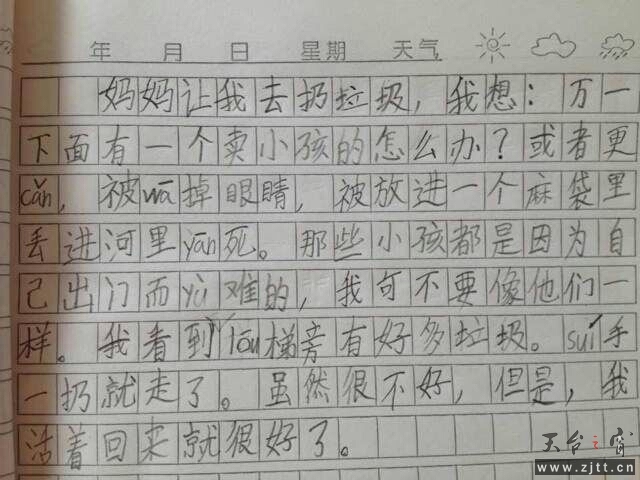 年 月 日 星期 天气
妈妈让我去扔垃圾，我想：万一
下面有一个卖小孩的怎么办？或者更
cǎn，被wā掉眼睛，被放进一个麻袋里
丢进河里yān死。那些小孩都是因为自
己出门而yù难的，我可不要像他们一
样。我看到lōu梯旁有好多垃圾。suí手
一扔就走了。虽然很不好，但是，我
活着回来就很好了。
天台之窗
www.zjtt.cn